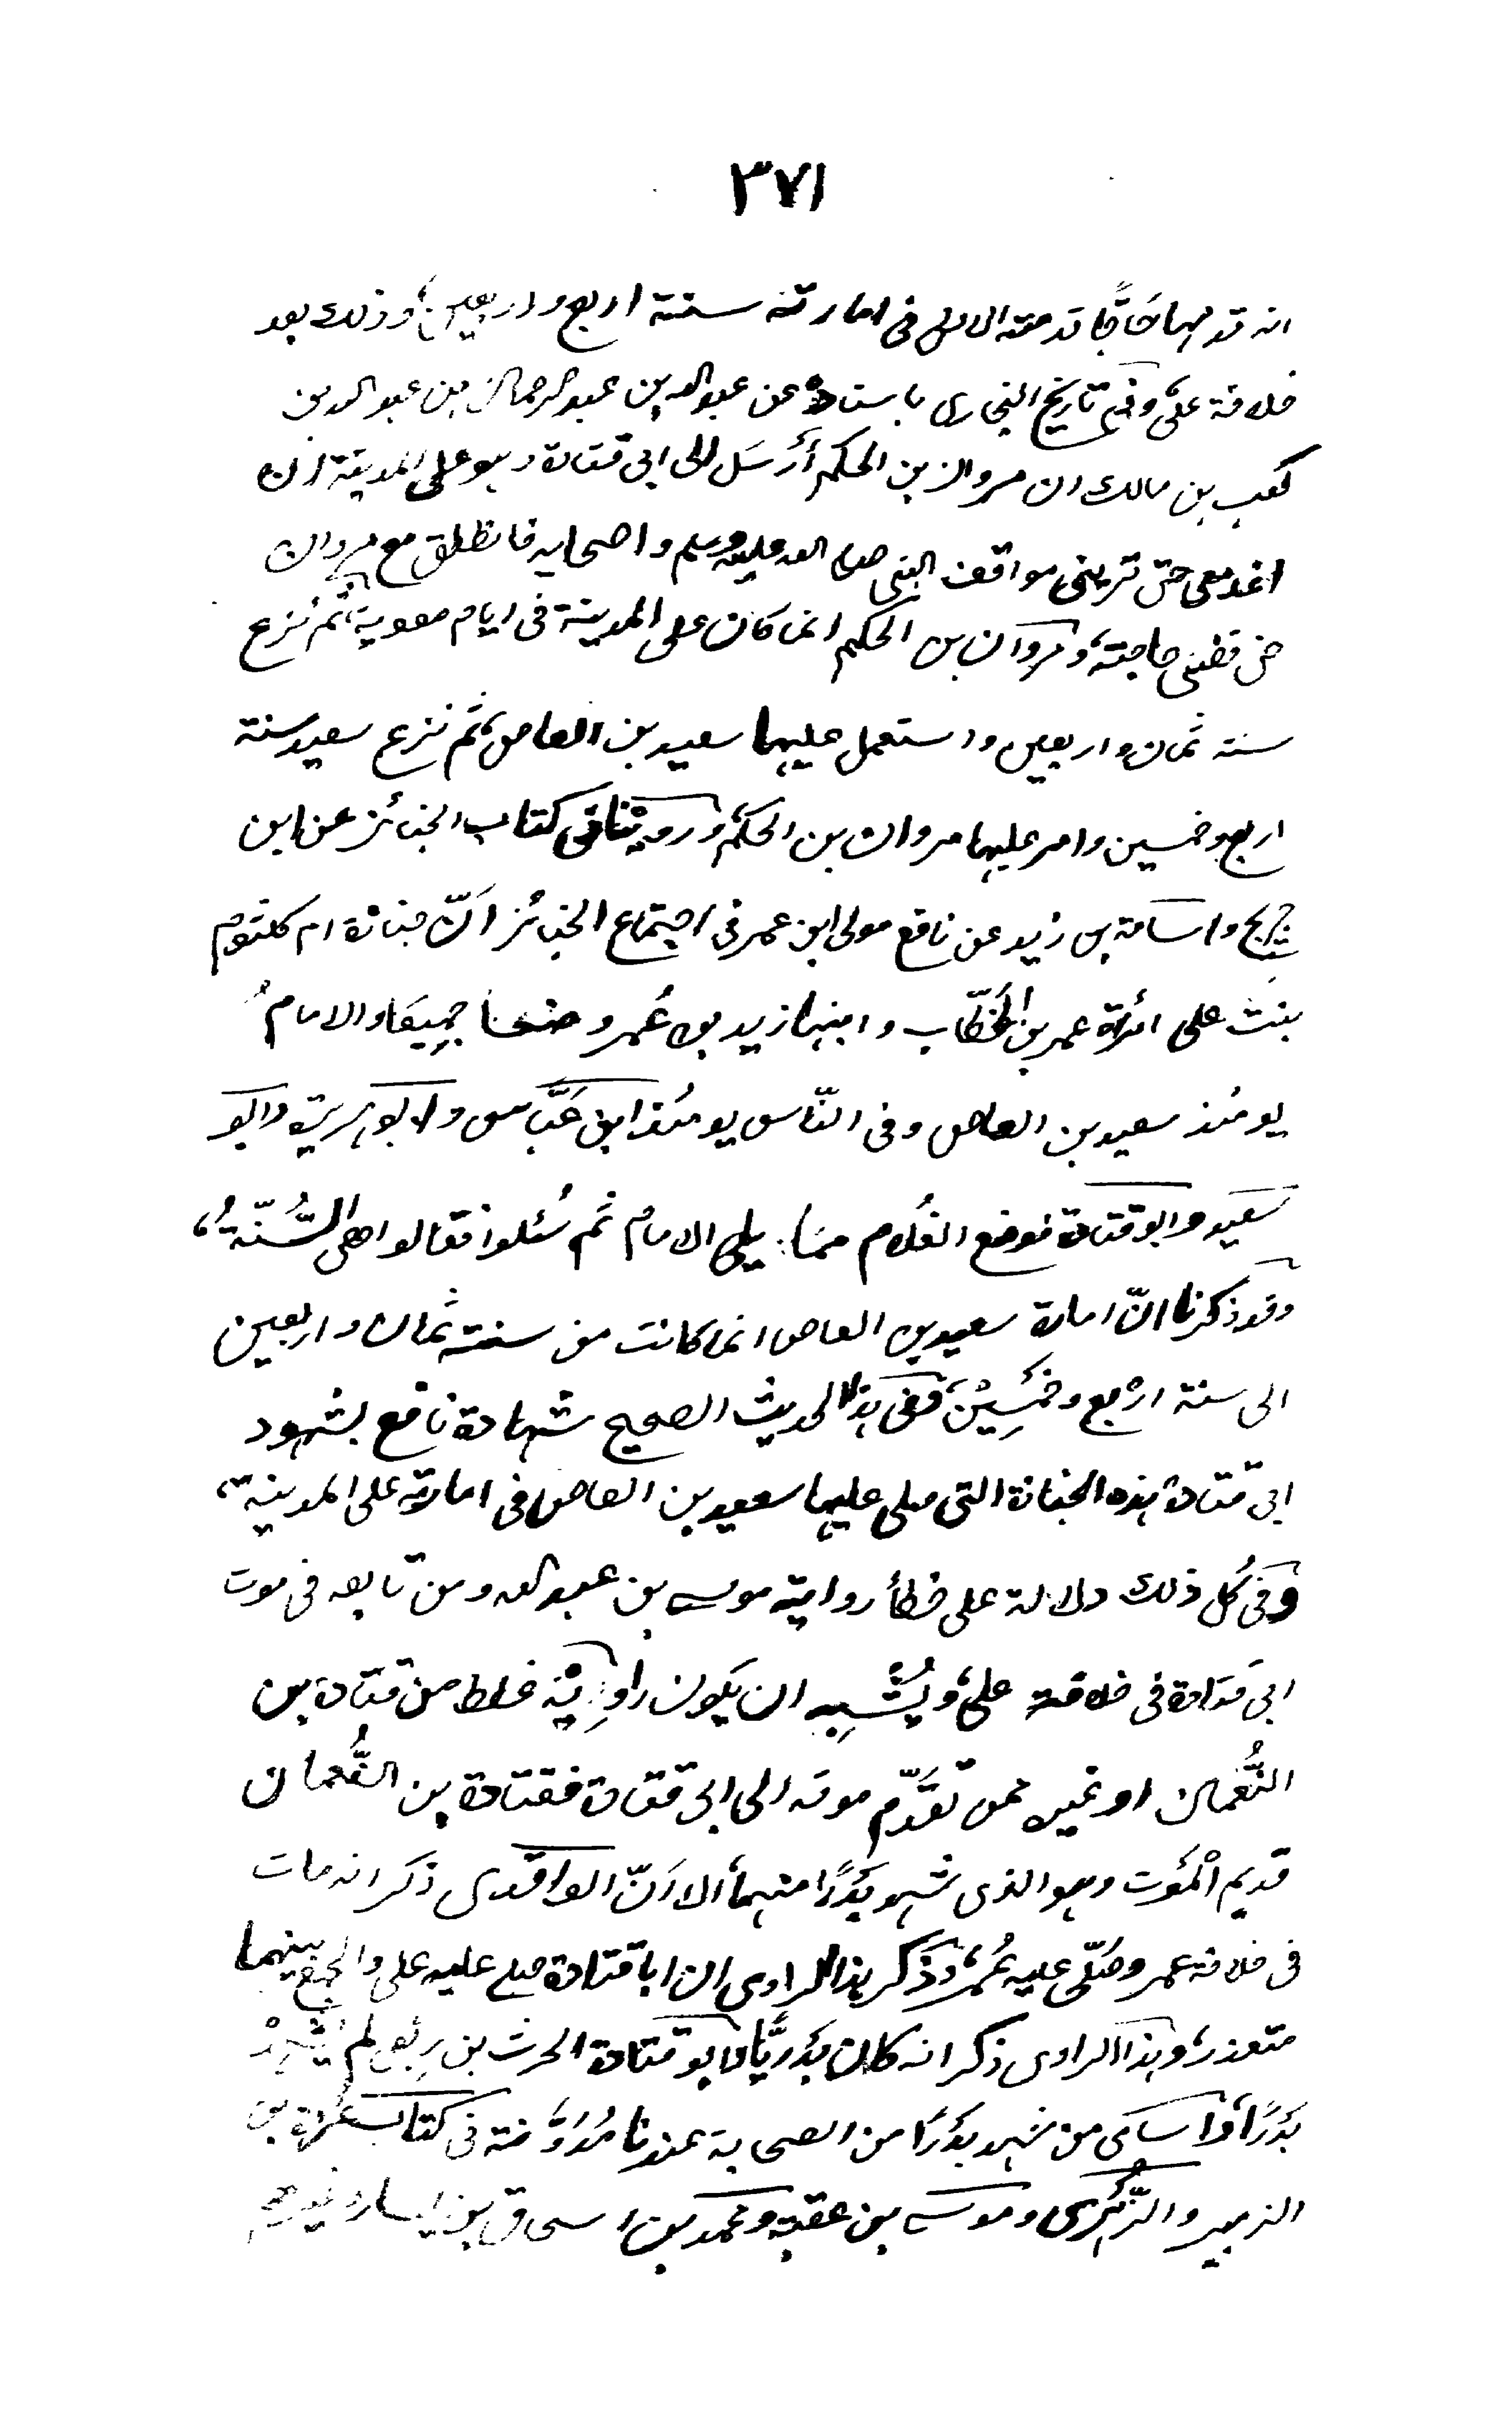 ٣٧١
انه قدمها حَاجًّا قدمته الاولى فى امارته سنة اربع واربعين، وذلك بعد
خلافة علىّ، وفى تاريخ البخارى باسناده عن عبد الله بن عبد الرحمان بن عبد الله بن
كعب بن مالك ان مروان بن الحكم أرْسَل الى ابى قتادة وهو على المدينة ان
اغد معى حتى ترينى مواقف النبى صلى الله عليه وسلم واصحابه فانطلق مع مروان
حتى قضى حاجته، ومروان بن الحكم انما كان على المدينة فى ايام معوية، ثم نُزع
سنة ثمان واربعين واستعمل عليها سعيد بن العاص، ثم نزع سعيد سنة
اربع وخمسين وامر عليها مروان بن الحكم، وروينا فى كتاب الجنائز عن ابن
جريج واسامة بن زيد عن نافع مولى ابن عمر فى اجتماع الجنائز انّ جنازة ام كلثوم
بنت على امرأة عمر بن الخطّاب وابنها زيد بن عُمر وضعا جميعا والامامُ
يومئذ سعيد بن العاص وفى النّاس يومئذ ابن عَبَّاس وابو هريرة وابو
سَعيد وابو قتادة فوضع الغُلام ممَا يلى الامام ثم سُئلوا فقالوا هى السُّنّةُ،
وقد ذكرنا انّ امارة سعيد بن العاص انما كانت من سنة ثمان واربعين
الى سنة ارْبع وخمْسِيْن، ففى هذا الحديث الصحيح شهادة نافع بشهود
ابى قتادة هذه الجنازة التى صلى عليها سعيد بن العاص فى امارته على المدينة،
وفى كُل ذلك دلالة على خطأ رواية موسى بن عبد الله ومن تابعه فى موت
ابى قتادة فى خلافة علىّ، ويُشْبِه ان يكون راويْه غلط من قتادة بن
النُّعمان او غيره ممن تقدَّم موته الى ابى قتادة فقتادة بن النُّعمان
قديم الْمَوْت وهو الذى شهد بَدْرًا منهما، الا انّ الواقدى ذكر انه مات
فى خلافة عمر وصَلّى عليه عُمَر، وذكر هذا الراوى ان ابا قتادة صلى عليه على والجمع بينهما
متعذر، وهذا الراوى ذكر انه كان بَدْريًّا وابو قتادة الحرث بن ربعى لم يشهدْ
بَدْرًا، واسامى من شهد بَدْرًا من الصحابة عندنا مُدَوَّنة فى كتاب عُروة بن
الزبير والزُّهْرى وموسى بن عقبة ومحمد بن اسحاق بن يسار وغيرهم